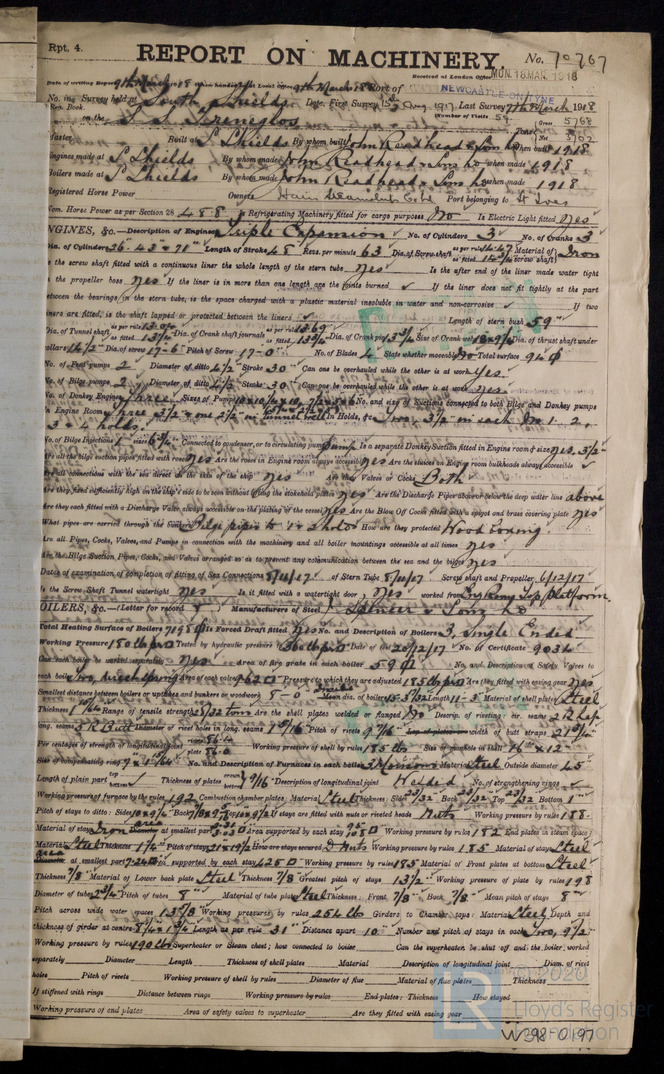 Rpt. 4.
REPORT ON MACHINERY.
No. 70767
Date of writing Report 9th March 18 When handed in at Local Office 9th March 18 Port of NEWCASTLE-ON-TYNE
Received at London Office MON. 18. MAR. 1918
No. in Survey held at South Shields Date, First Survey 15th Aug. 1917 Last Survey 7th March 1918
Reg. Book. on the S.S. (Number of Visits 59
Gross 5768
Master Built at S. Shields By whom built John Readhead & Sons Ld When built 1918
Engines made at S. Shields By whom made John Readhead & Sons Ld when made 1918
Boilers made at S. Shields By whom made John Readhead & Sons Ld when made 1918
Registered Horse Power Owners Hain Steamship Co Ld Port belonging to St Ives
Nom. Horse Power as per Section 28 488 Is Refrigerating Machinery fitted for cargo purposes No Is Electric Light fitted Yes
ENGINES, &c.—Description of Engines Triple Expansion No. of Cylinders 3 No. of Cranks 3
Dia. of Cylinders 26"-43"-71" Length of Stroke 48 Revs. per minute 63 Dia. of Screw shaft as per rule as fitted Material of screw shaft Iron
Is the screw shaft fitted with a continuous liner the whole length of the stern tube Yes Is the after end of the liner made water tight
in the propeller boss Yes If the liner is in more than one length are the joints burned If the liner does not fit tightly at the part
between the bearings in the stern tube, is the space charged with a plastic material insoluble in water and non-corrosive If two
liners are fitted, is the shaft lapped or protected between the liners Length of stern bush 59"
Dia. of Tunnel shaft as per rule as fitted 13 3/4 Dia. of Crank shaft journals as per rule 13.69 as fitted 13 3/4 Dia. of Crank pin 13 3/4 Size of Crank webs Dia. of thrust shaft under
collars 14 1/2 Dia. of screw 17-6 Pitch of Screw 17-0 No. of Blades 4 State whether moveable No Total surface 94
No. of Feed pumps 2 Diameter of ditto 4 1/2 Stroke 30 Can one be overhauled while the other is at work Yes
No. of Bilge pumps 2 Diameter of ditto 4 1/2 Stroke 30 Can one be overhauled while the other is at work Yes
No. of Donkey Engines Three Sizes of Pumps No. and size of Suctions connected to both Bilge and Donkey pumps
In Engine Room Three 3 1/2 & one 2 1/2 in tunnel well In Holds, &c. Two, 3 1/2 in each No 1. 2.
3 & 4 holds.
No. of Bilge Injections 1 sizes Connected to condenser, or to circulating pump Pump Is a separate Donkey Suction fitted in Engine room & size Yes, 3 1/2
Are all the bilge suction pipes fitted with roses Yes Are the roses in Engine room always accessible Yes Are the sluices on Engine room bulkheads always accessible
Are all connections with the sea direct on the skin of the ship Yes Are they Valves or Cocks Both
Are they fixed sufficiently high on the ship's side to be seen without lifting the stokehold plates Yes Are the Discharge Pipes above or below the deep water line above
Are they each fitted with a Discharge Valve always accessible on the plating of the vessel Yes Are the Blow Off Cocks fitted with a spigot and brass covering plate Yes
What pipes are carried through the bunkers Bilge pipes to holds How are they protected Wood casing.
Are all Pipes, Cocks, Valves, and Pumps in connection with the machinery and all boiler mountings accessible at all times Yes
Are the Bilge Suction Pipes, Cocks, and Valves arranged so as to prevent any communication between the sea and the bilges Yes
Dates of examination of completion of fitting of Sea Connections 8/11/17 of Stern Tube 8/11/17 Screw shaft and Propeller 6/12/17
Is the Screw Shaft Tunnel watertight Yes Is it fitted with a watertight door Yes worked from Eng Room Top platform.
BOILERS, &c.—(Letter for record S) Manufacturers of Steel J. Spencer & Sons Ld
Total Heating Surface of Boilers 7198 Is Forced Draft fitted Yes No. and Description of Boilers 3, Single Ended
Working Pressure 180 lb Tested by hydraulic pressure to 360 lb Date of test No. of Certificate 9034
Can each boiler be worked separately Yes Area of fire grate in each boiler 59 No. and Description of Safety Valves to
each boiler Two, direct spring Area of each valve Pressure to which they are adjusted 185 lb Are they fitted with easing gear Yes
Smallest distance between boilers or uptakes and bunkers or woodwork 8"-0 Mean dia. of boilers Length 11-3 Material of shell plates Steel
Thickness Range of tensile strength 28/32 tons Are the shell plates welded or flanged No Descrip. of riveting: cir. seams 2R Lap
long. seams 5R Butt Diameter of rivet holes in long. seams 1 5/16 Pitch of rivets 9 7/16 Lap of plates or width of butt straps 21 3/4"
Per centages of strength of longitudinal joint rivets plate 86.0 Working pressure of shell by rules 185 lb Size of manhole in shell 16" x 12"
Size of compensating ring No. and Description of Furnaces in each boiler 3 Morisons Material Steel Outside diameter 45"
Length of plain part top bottom Thickness of plates crown bottom 9/16 Description of longitudinal joint Welded No. of strengthening rings
Working pressure of furnace by the rules 192 Combustion chamber plates: Material Steel Thickness: Sides 23/32 Back 23/32 Top 23/32 Bottom 1"
Pitch of stays to ditto: Sides Back Top If stays are fitted with nuts or riveted heads Nuts Working pressure by rules 188
Material of stays Iron Diameter at smallest part Area supported by each stay Working pressure by rules 182 End plates in steam space:
Material Steel Thickness Pitch of stays How are stays secured D Nuts Working pressure by rules 185 Material of stays Steel
Area at smallest part Area supported by each stay 425 Working pressure by rules 185 Material of Front plates at bottom Steel
Thickness 7/8 Material of Lower back plate Steel Thickness 7/8 Greatest pitch of stays 13 1/2" Working pressure of plate by rules 198
Diameter of tubes 2 3/4" Pitch of tubes 8" Material of tube plates Steel Thickness: Front 7/8" Back 7/8" Mean pitch of stays 8"
Pitch across wide water spaces 13 5/8 Working pressures by rules 254 lbs Girders to Chamber tops: Material Steel Depth and
thickness of girder at centre Length as per rule 31" Distance apart 10" Number and pitch of stays in each Two, 9 1/2"
Working pressure by rules 190 lb Superheater or Steam chest; how connected to boiler Can the superheater be shut off and the boiler worked
separately Diameter Length Thickness of shell plates Material Description of longitudinal joint Diam. of rivet
holes Pitch of rivets Working pressure of shell by rules Diameter of flue Material of flue plates Thickness
If stiffened with rings Distance between rings Working pressure by rules End plates: Thickness How stayed
Working pressure of end plates Area of safety valves to superheater Are they fitted with easing gear
© 2020
Lloyd's Register
Foundation
W398-0197